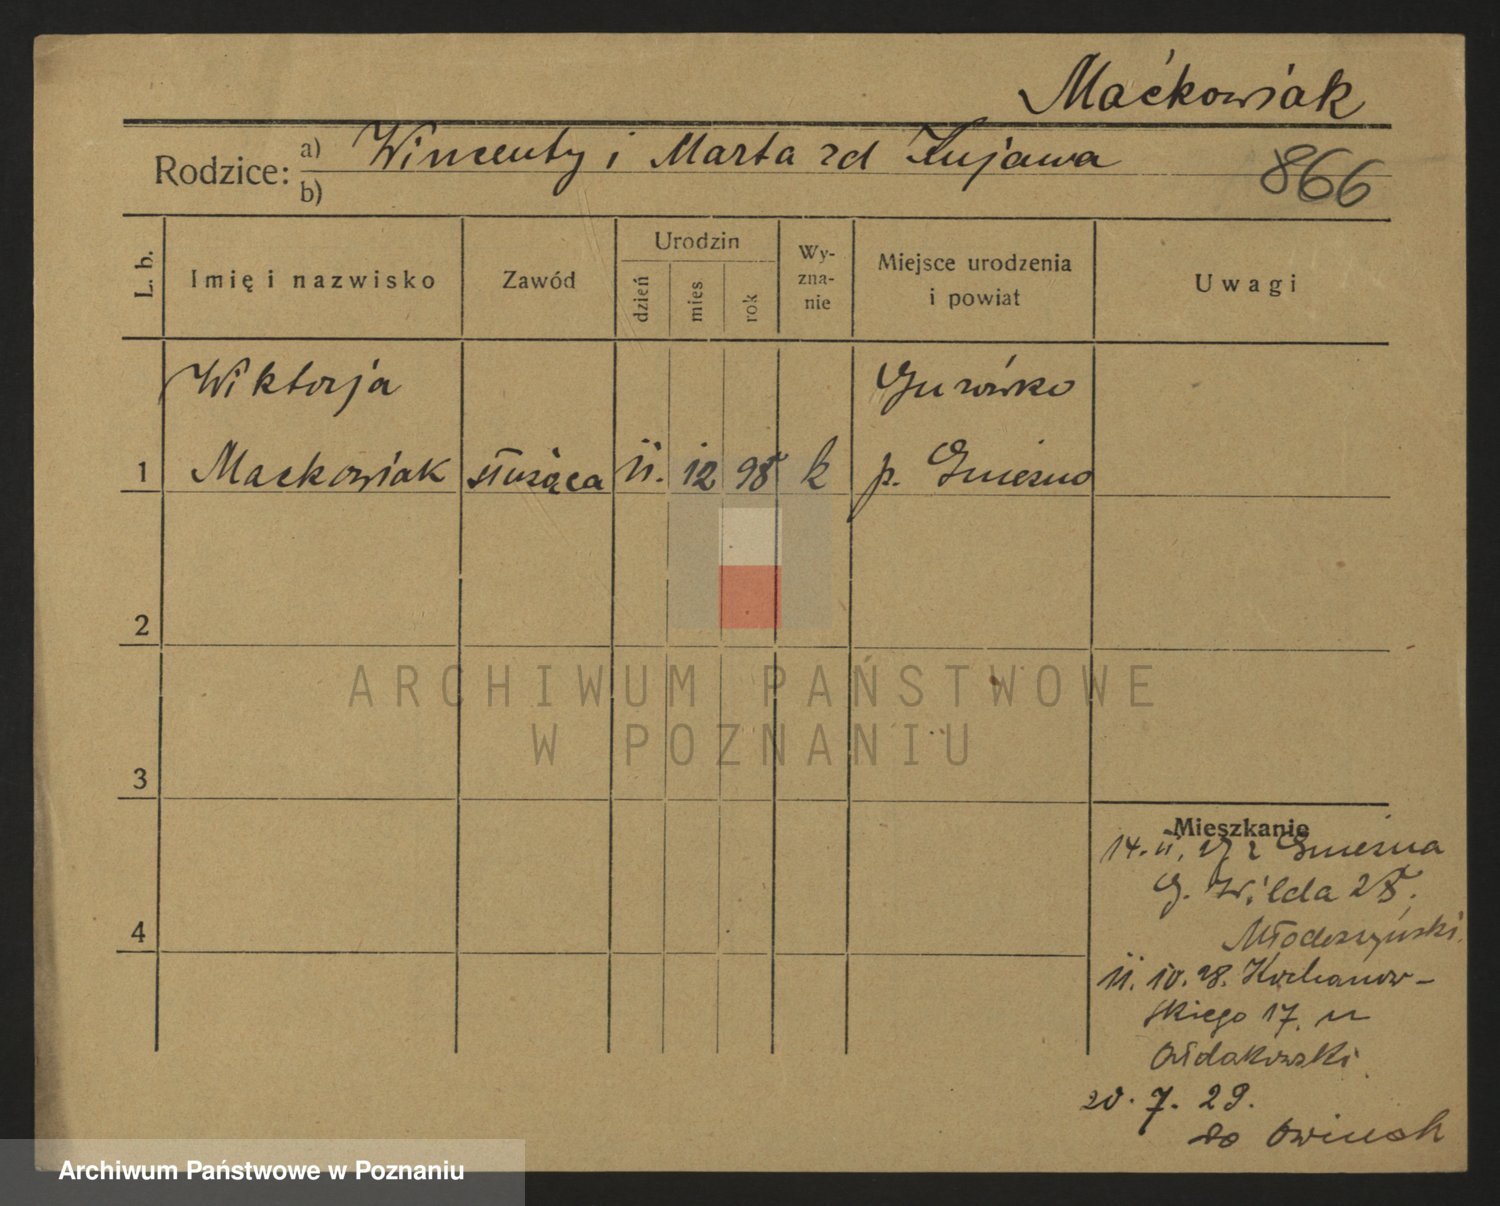 Maćkowiak
Rodzice: a) Wincenty i Marta zd Kujawa
b)
866
L. b.
Imię i nazwisko
Zawód
Urodzin
dzień
mies
rok
Wy-
zna-
nie
Miejsce urodzenia
i powiat
Uwagi
Wiktorja
Gurówko
1 Mackowiak służąca 11. 12 98 k p. Gniezno
2
3
4
ARCHIWUM PAŃSTWOWE
W POZNANIU
Mieszkanie
14. 11. 27 z Gniezna
G. Wilda 28.
11. 10. 28. Kochanow-
skiego 17. u
20. 7. 29.
do Owinsk
Archiwum Państwowe w Poznaniu